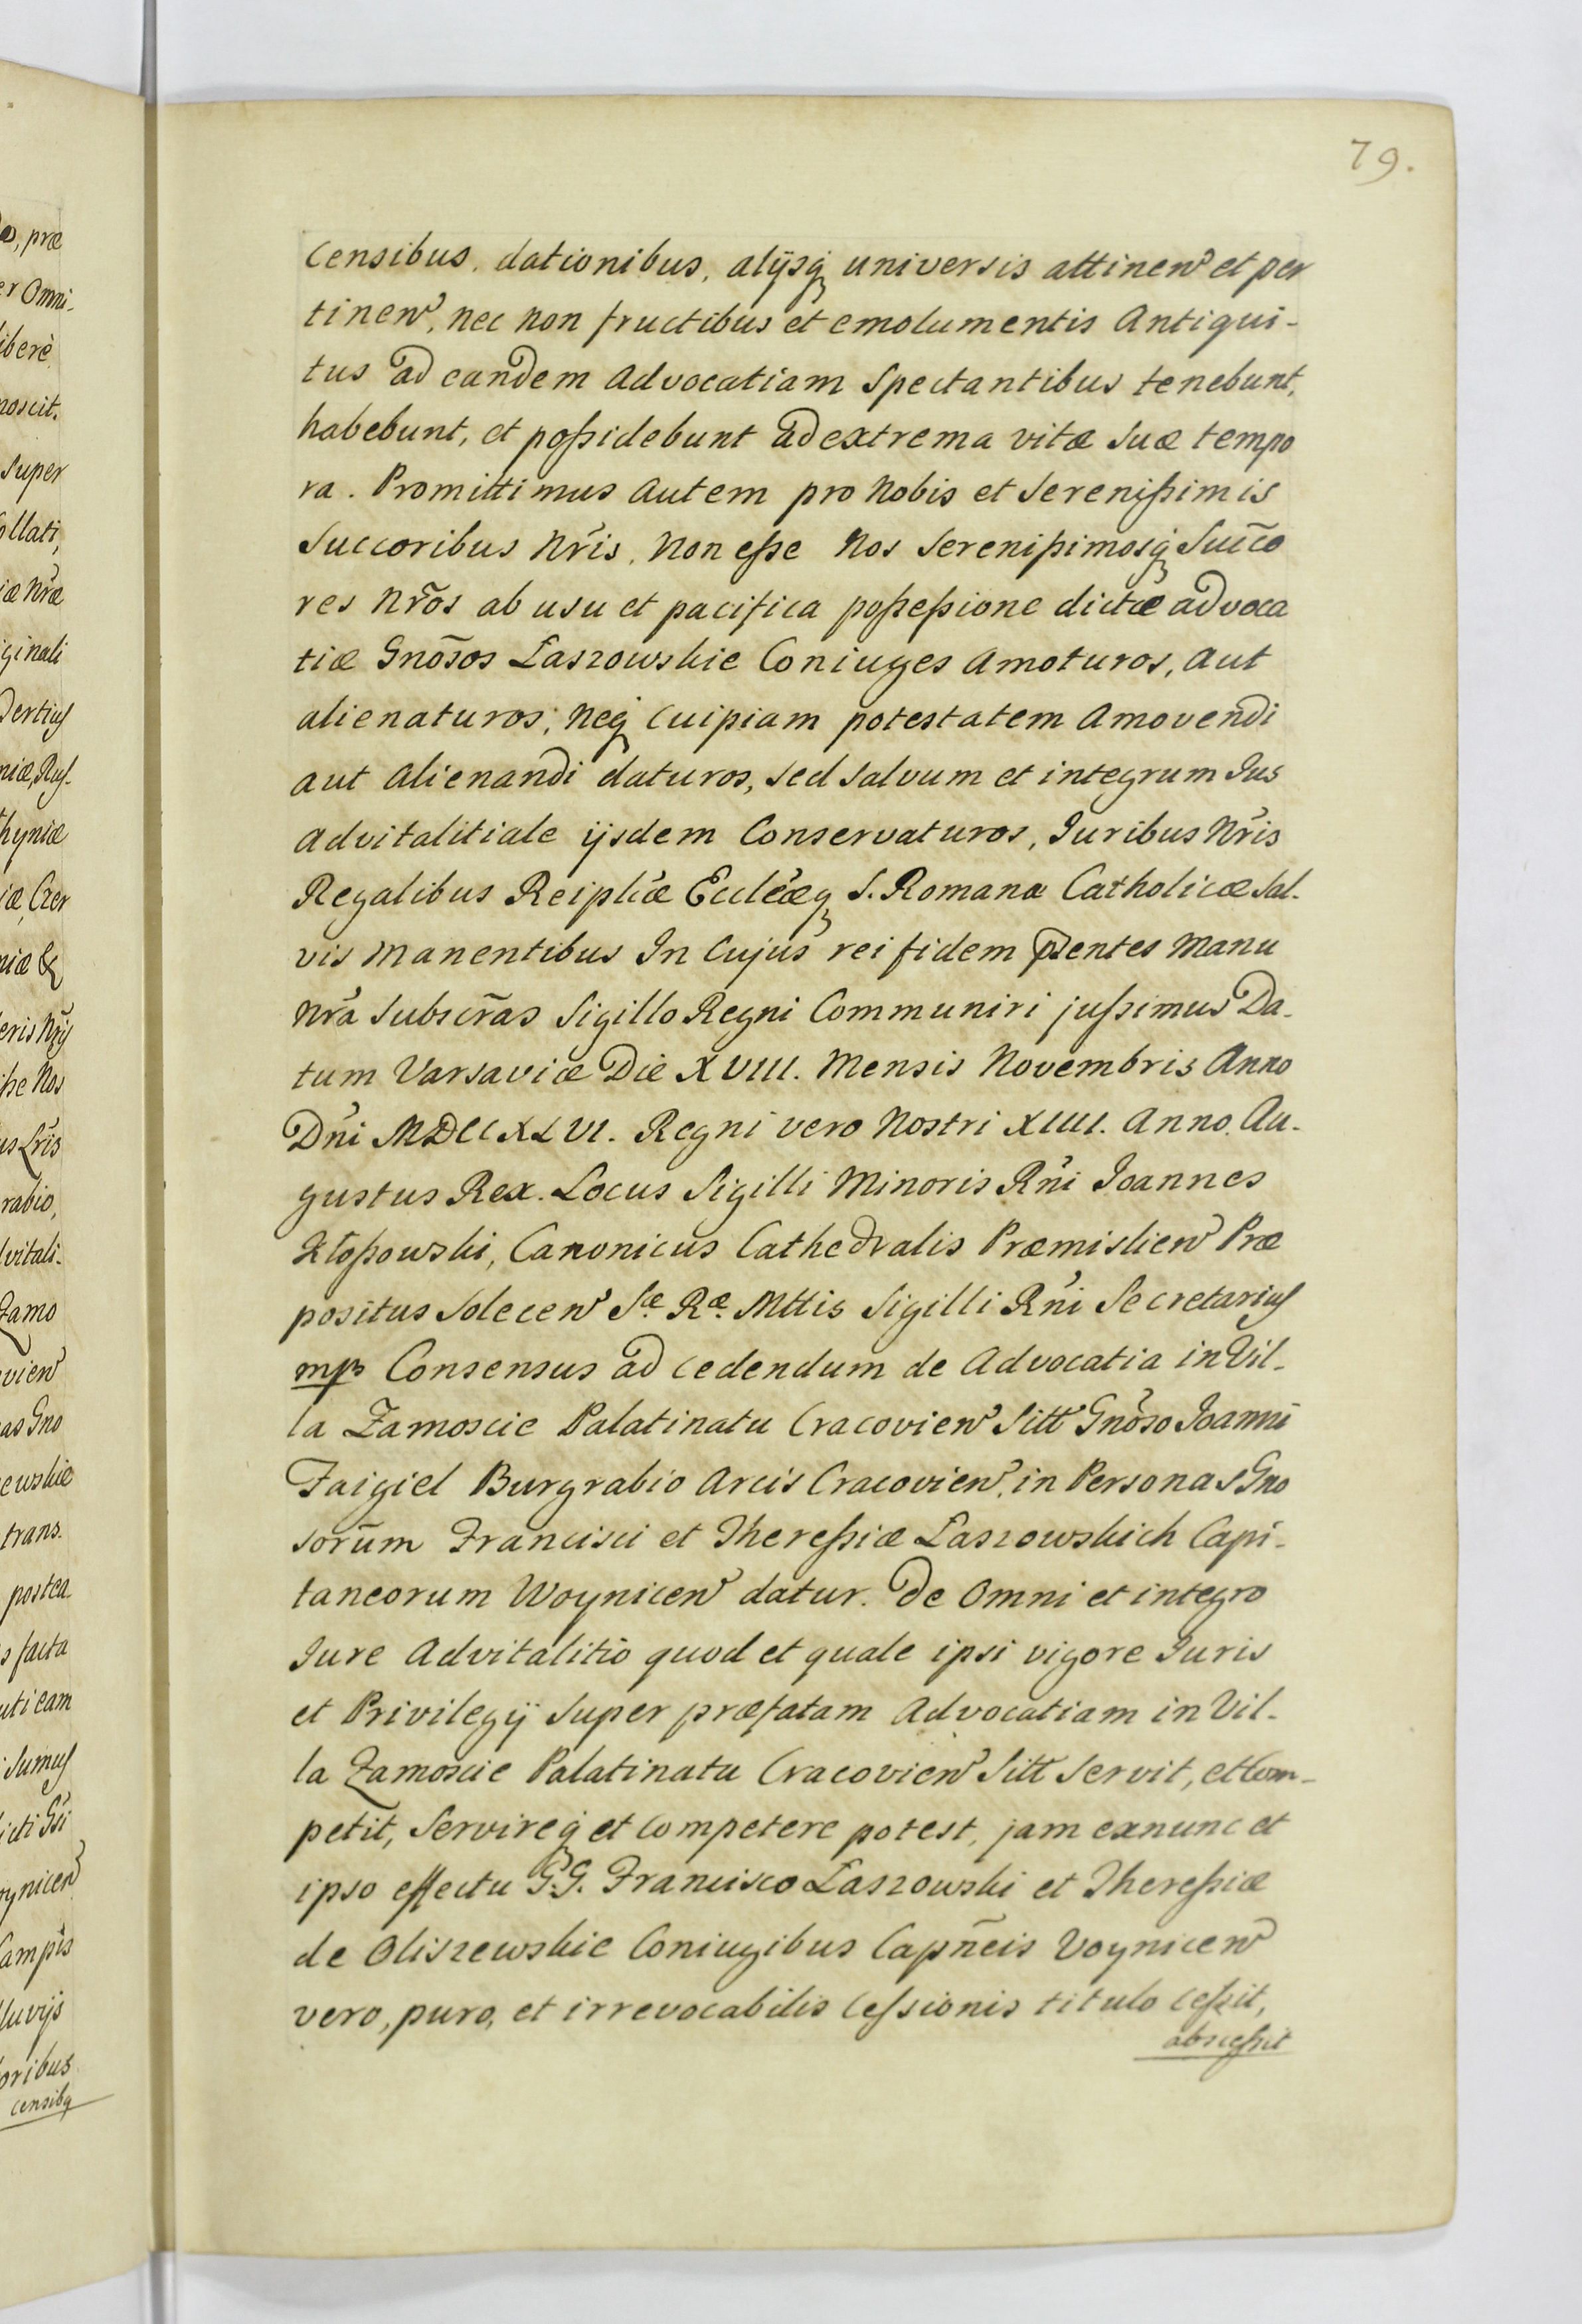 79.
censibus, dationibus, alijsq̃ universis attinen̄ et per
tinen̄, nec non fructibus et emolumentis Antiqui-
tus ad eandem Advocatiam Spectantibus tenebunt,
habebunt, et poſsidebunt ad extrema vitæ suæ tempo
ra. Promittimus Autem pro Nobis et Sereniſsimis
Succoribus Nr̃is, Non eſse Nos Sereniſsimosq̃ Succ̃o
res Nr̃os ab usu et pacifica poſseſsione dictæ advoca
tiæ Gnõsos Laszowskie Coniuges Amoturos, Aut
alienaturos, Neq̃ cuipiam potestatem Amovendi
aut Alienandi daturos, sed salvum et integrum Jus
advitalitiale ijsdem Conservaturos, Juribus Nr̃is
Regalibus Reipl̃æ Eccl̃æq̃ S. Romanæ Catholicæ Sal-
vis Manentibus In Cujus rei fidem p̃sentes Manu
Nr̃a subscr̃as Sigillo Regni Communiri juſsimus Da-
tum Varsaviæ Die XVIII. Mensis Novembris Anno
Dñi MDCCXLVI. Regni vero Nostri XIIII. Anno. Au-
gustus Rex. Locus Sigilli Minoris Rñi Joannes
Kłoſsowski, Canonicus Cathedralis Præmislien̄ Præ
positus Solecen̄ Sæ Ræ. Mttis Sigilli Rñi Secretarius
mp̃ Consensus ad cedendum de Advocatia in Vil-
la Zamoscie Palatinatu Cracovien̄ Sitt̃ Gnõso Joanni
Faigiel Burgrabio Arcis Cracovien̄, in Personas Gno
sorũm Francisci et Thereſsiæ Laszowskich Capi-
taneorum Woynicen̄ datur. De Omni et integro
Jure Advitalitio quod et quale ipsi vigore Juris
et Privilegij super præfatam Advocatiam in Vil-
la Zamoscie Palatinatu Cracovien̄ Sitt̃ servit, et Com-
petit, Servireq̃ et Competere potest, jam exnunc et
ipso effectu G.G. Francisco Laszowski et Thereſsiæ
de Oliszewskie Coniugibus Capñeis Voynicen̄
vero, puro, et irrevocabilis Ceſsionis titulo ceſsit,
absceſsit